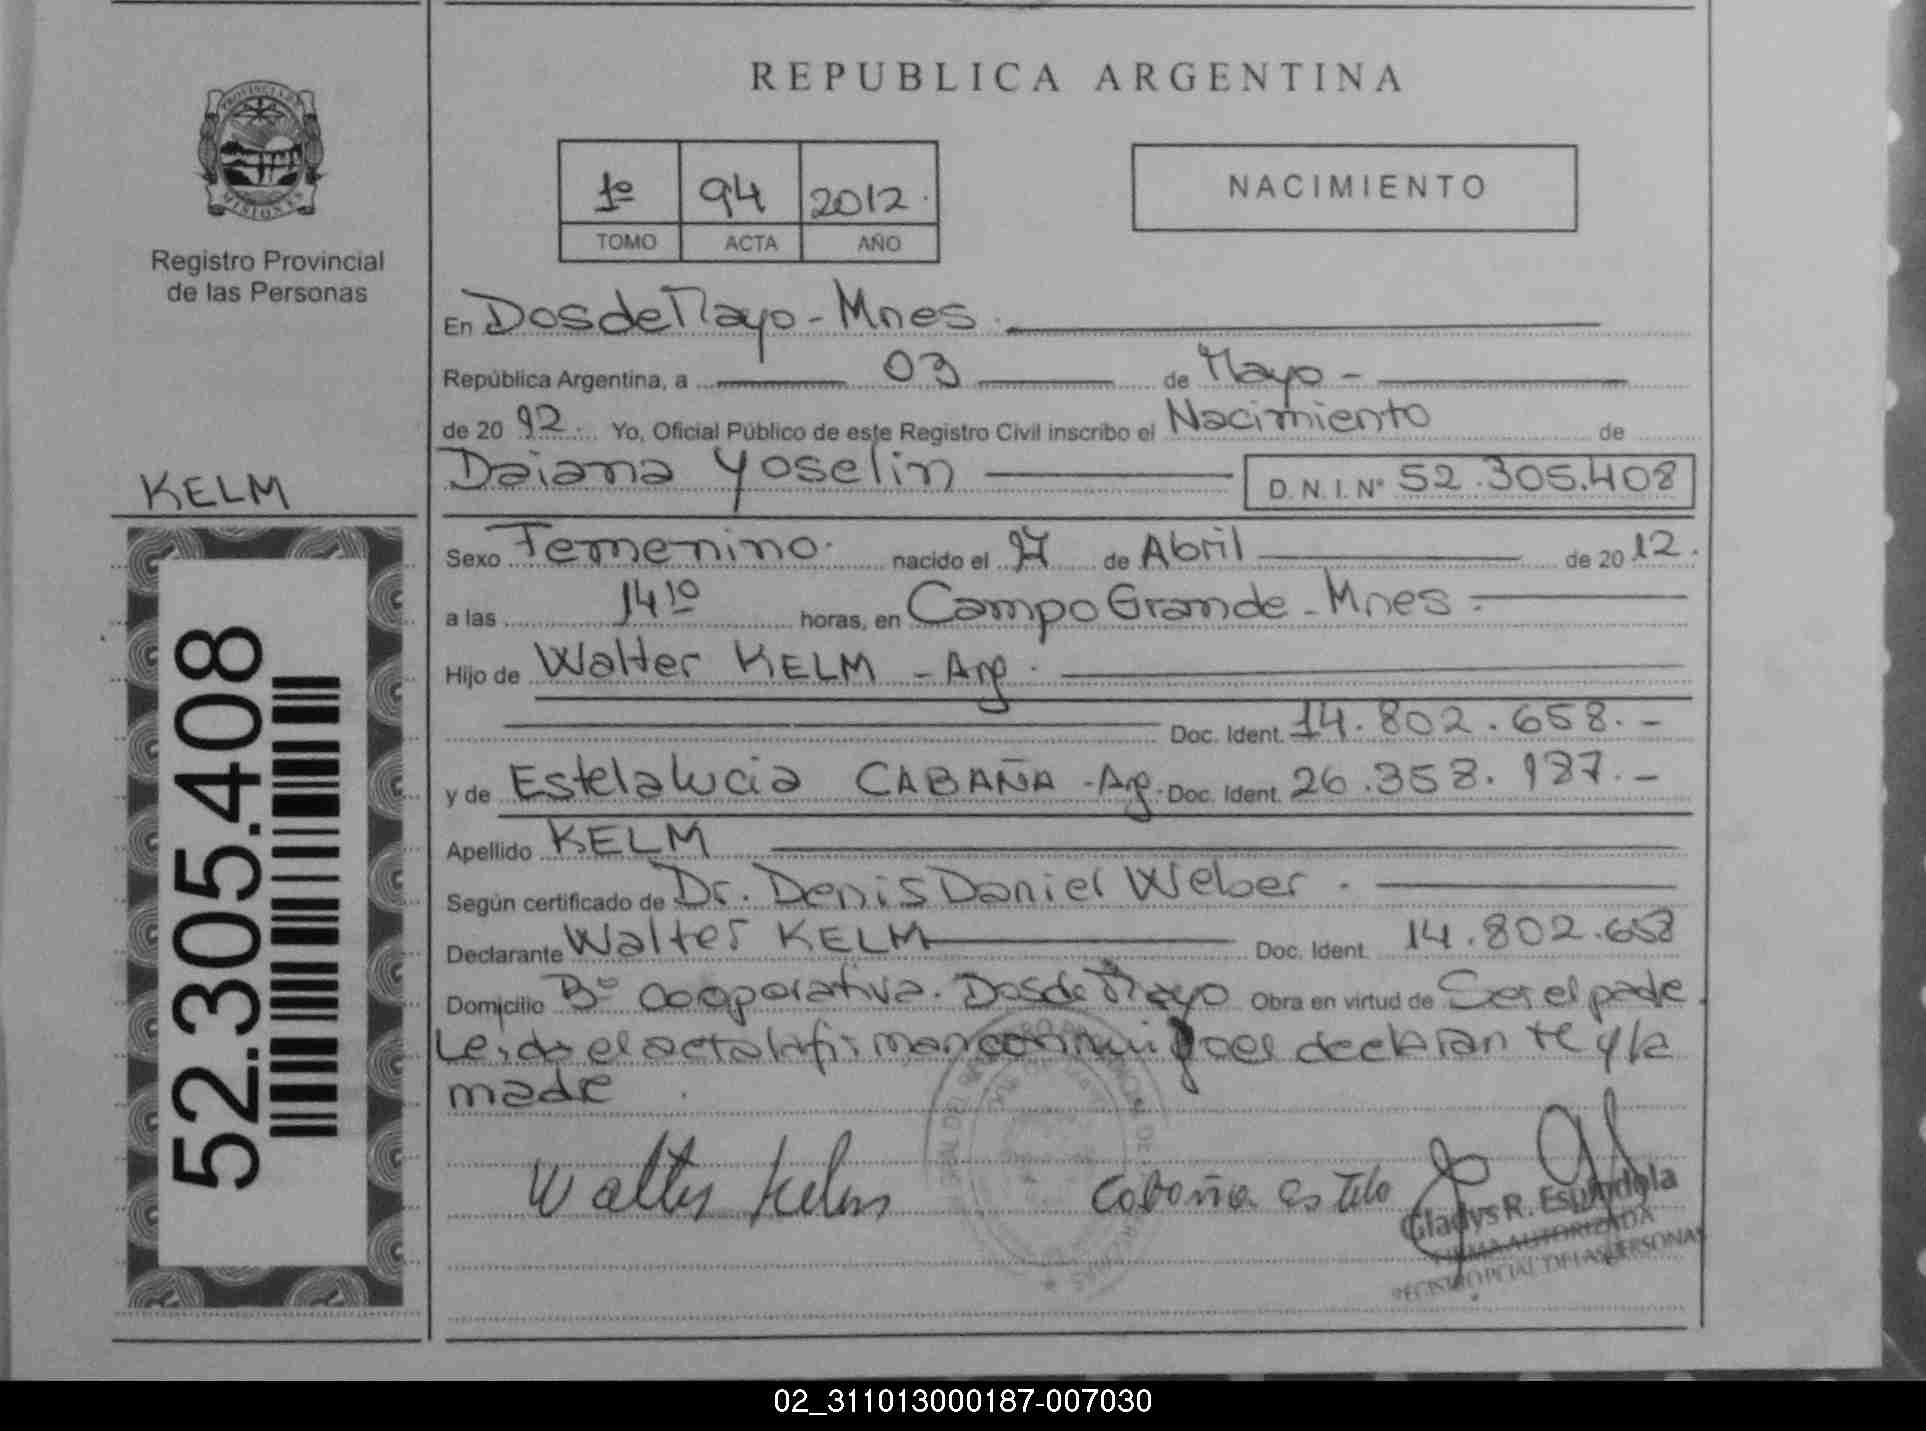 REPUBLICA ARGENTINA
PROVINCIA DE
MISIONES
Registro Provincial
de las Personas
1º 94 2012.
TOMO ACTA AÑO
NACIMIENTO
En Dos de Mayo - Mnes.
República Argentina, a 03 de Mayo -
de 20 12. Yo, Oficial Público de este Registro Civil inscribo el Nacimiento de
KELM
Daiana Yoselin D. N. I. Nº 52.305.408
Sexo Femenino. nacido el 17 de Abril de 20 12.
a las 14 10 horas, en Campo Grande - Mnes.
Hijo de Walter KELM - Arg.
Doc. Ident. 14.802.658.-
y de Estela Lucia CABAÑA - Arg. Doc. Ident. 26.358.187.-
Apellido KELM
Según certificado de Dr. Denis Daniel Weber.
Declarante Walter KELM Doc. Ident. 14.802.658
Domicilio Bº Cooperativa. Dos de Mayo Obra en virtud de Ser el padre.
Leida el acta la firman conmigo el declarante y la
madre.
52.305.408
Walter Kelm Cabaña Estela
Gladys R. Espindola
FIRMA AUTORIZADA
REGISTRO PCIAL. DE LAS PERSONAS
02_311013000187-007030